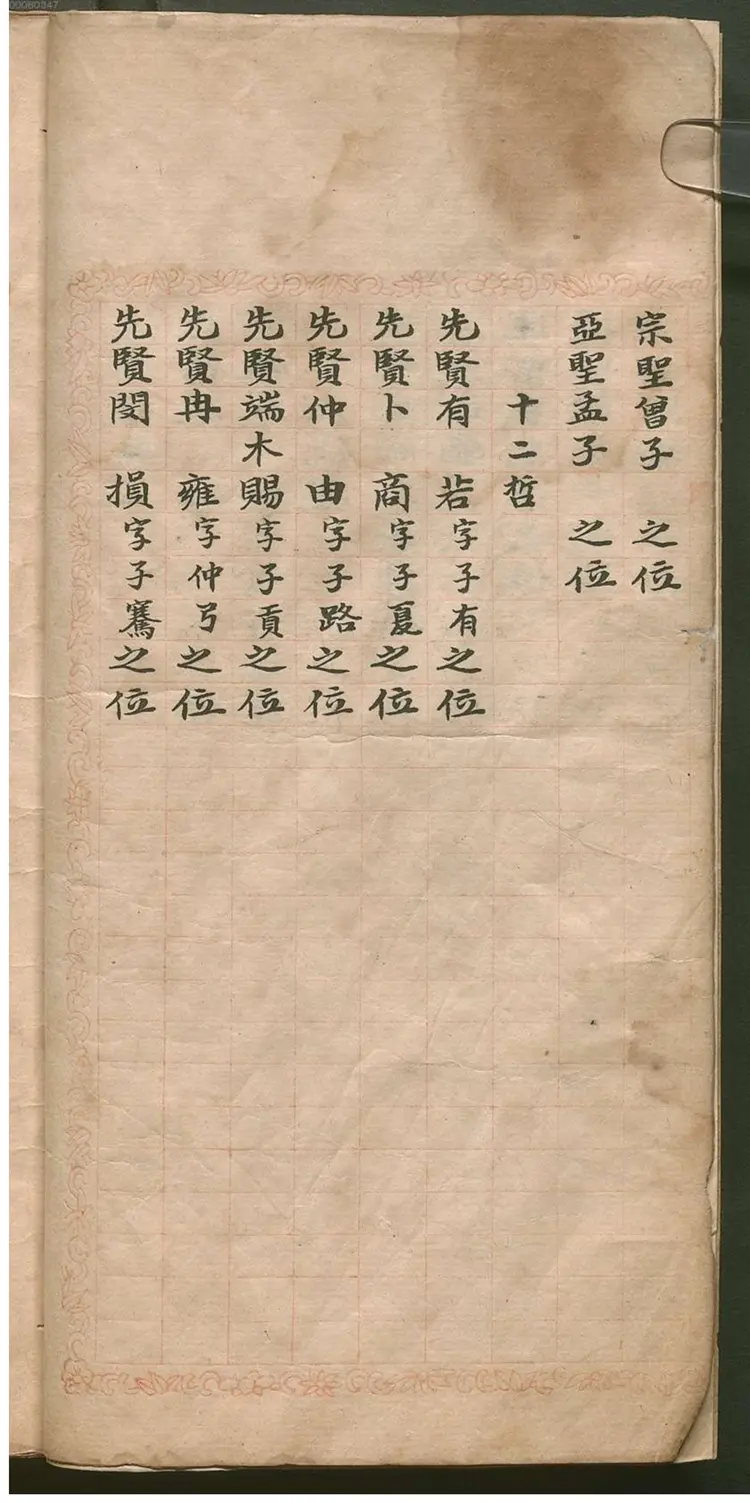 00060347
宗聖曾子 之位
亞聖孟子 之位
十二哲
先賢有 若字子有之位
先賢卜 商字子夏之位
先賢仲 由字子路之位
先賢端木賜字子貢之位
先賢冉 雍字仲弓之位
先賢閔 損字子騫之位